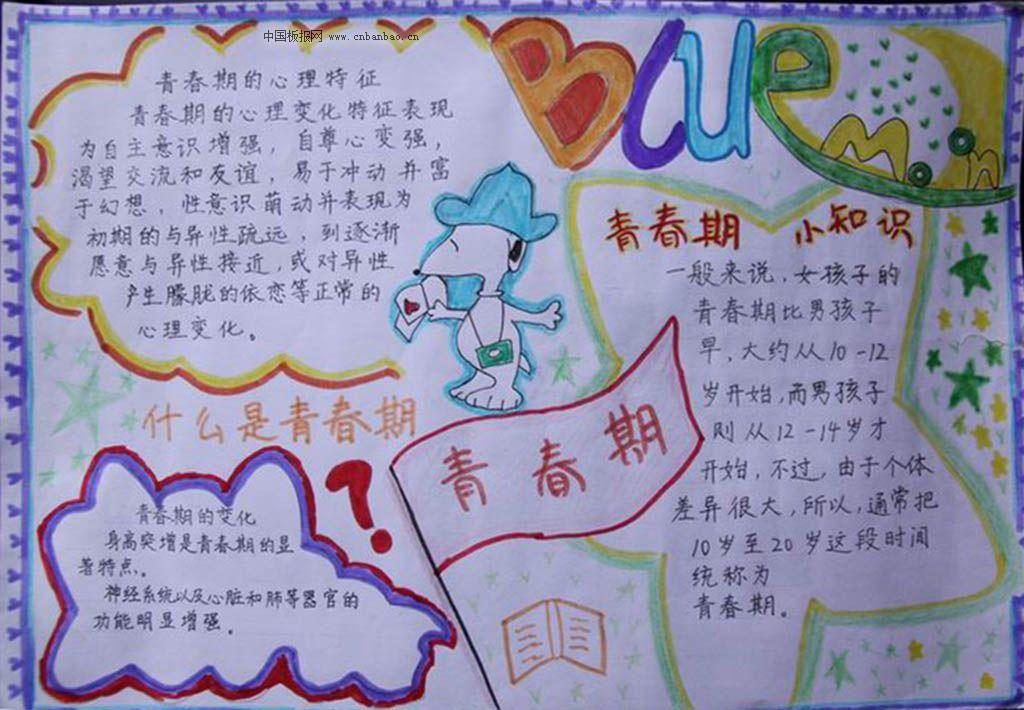 中国板报网 www.cnbanbao.cn
Blue
Moon
青春期的心理特征
青春期的心理变化特征表现
为自主意识增强，自尊心变强，
渴望交流和友谊，易于冲动并富
于幻想，性意识萌动并表现为
初期的与异性疏远，到逐渐
愿意与异性接近，或对异性
产生朦胧的依恋等正常的
心理变化。
什么是青春期
?
青春期的变化
身高突增是青春期的显
著特点。
神经系统以及心脏和肺等器官的
功能明显增强。
青春期
青春期 小知识
一般来说，女孩子的
青春期比男孩子
早，大约从10-12
岁开始，而男孩子
则从12-14岁才
开始，不过，由于个体
差异很大，所以，通常把
10岁至20岁这段时间
统称为
青春期。